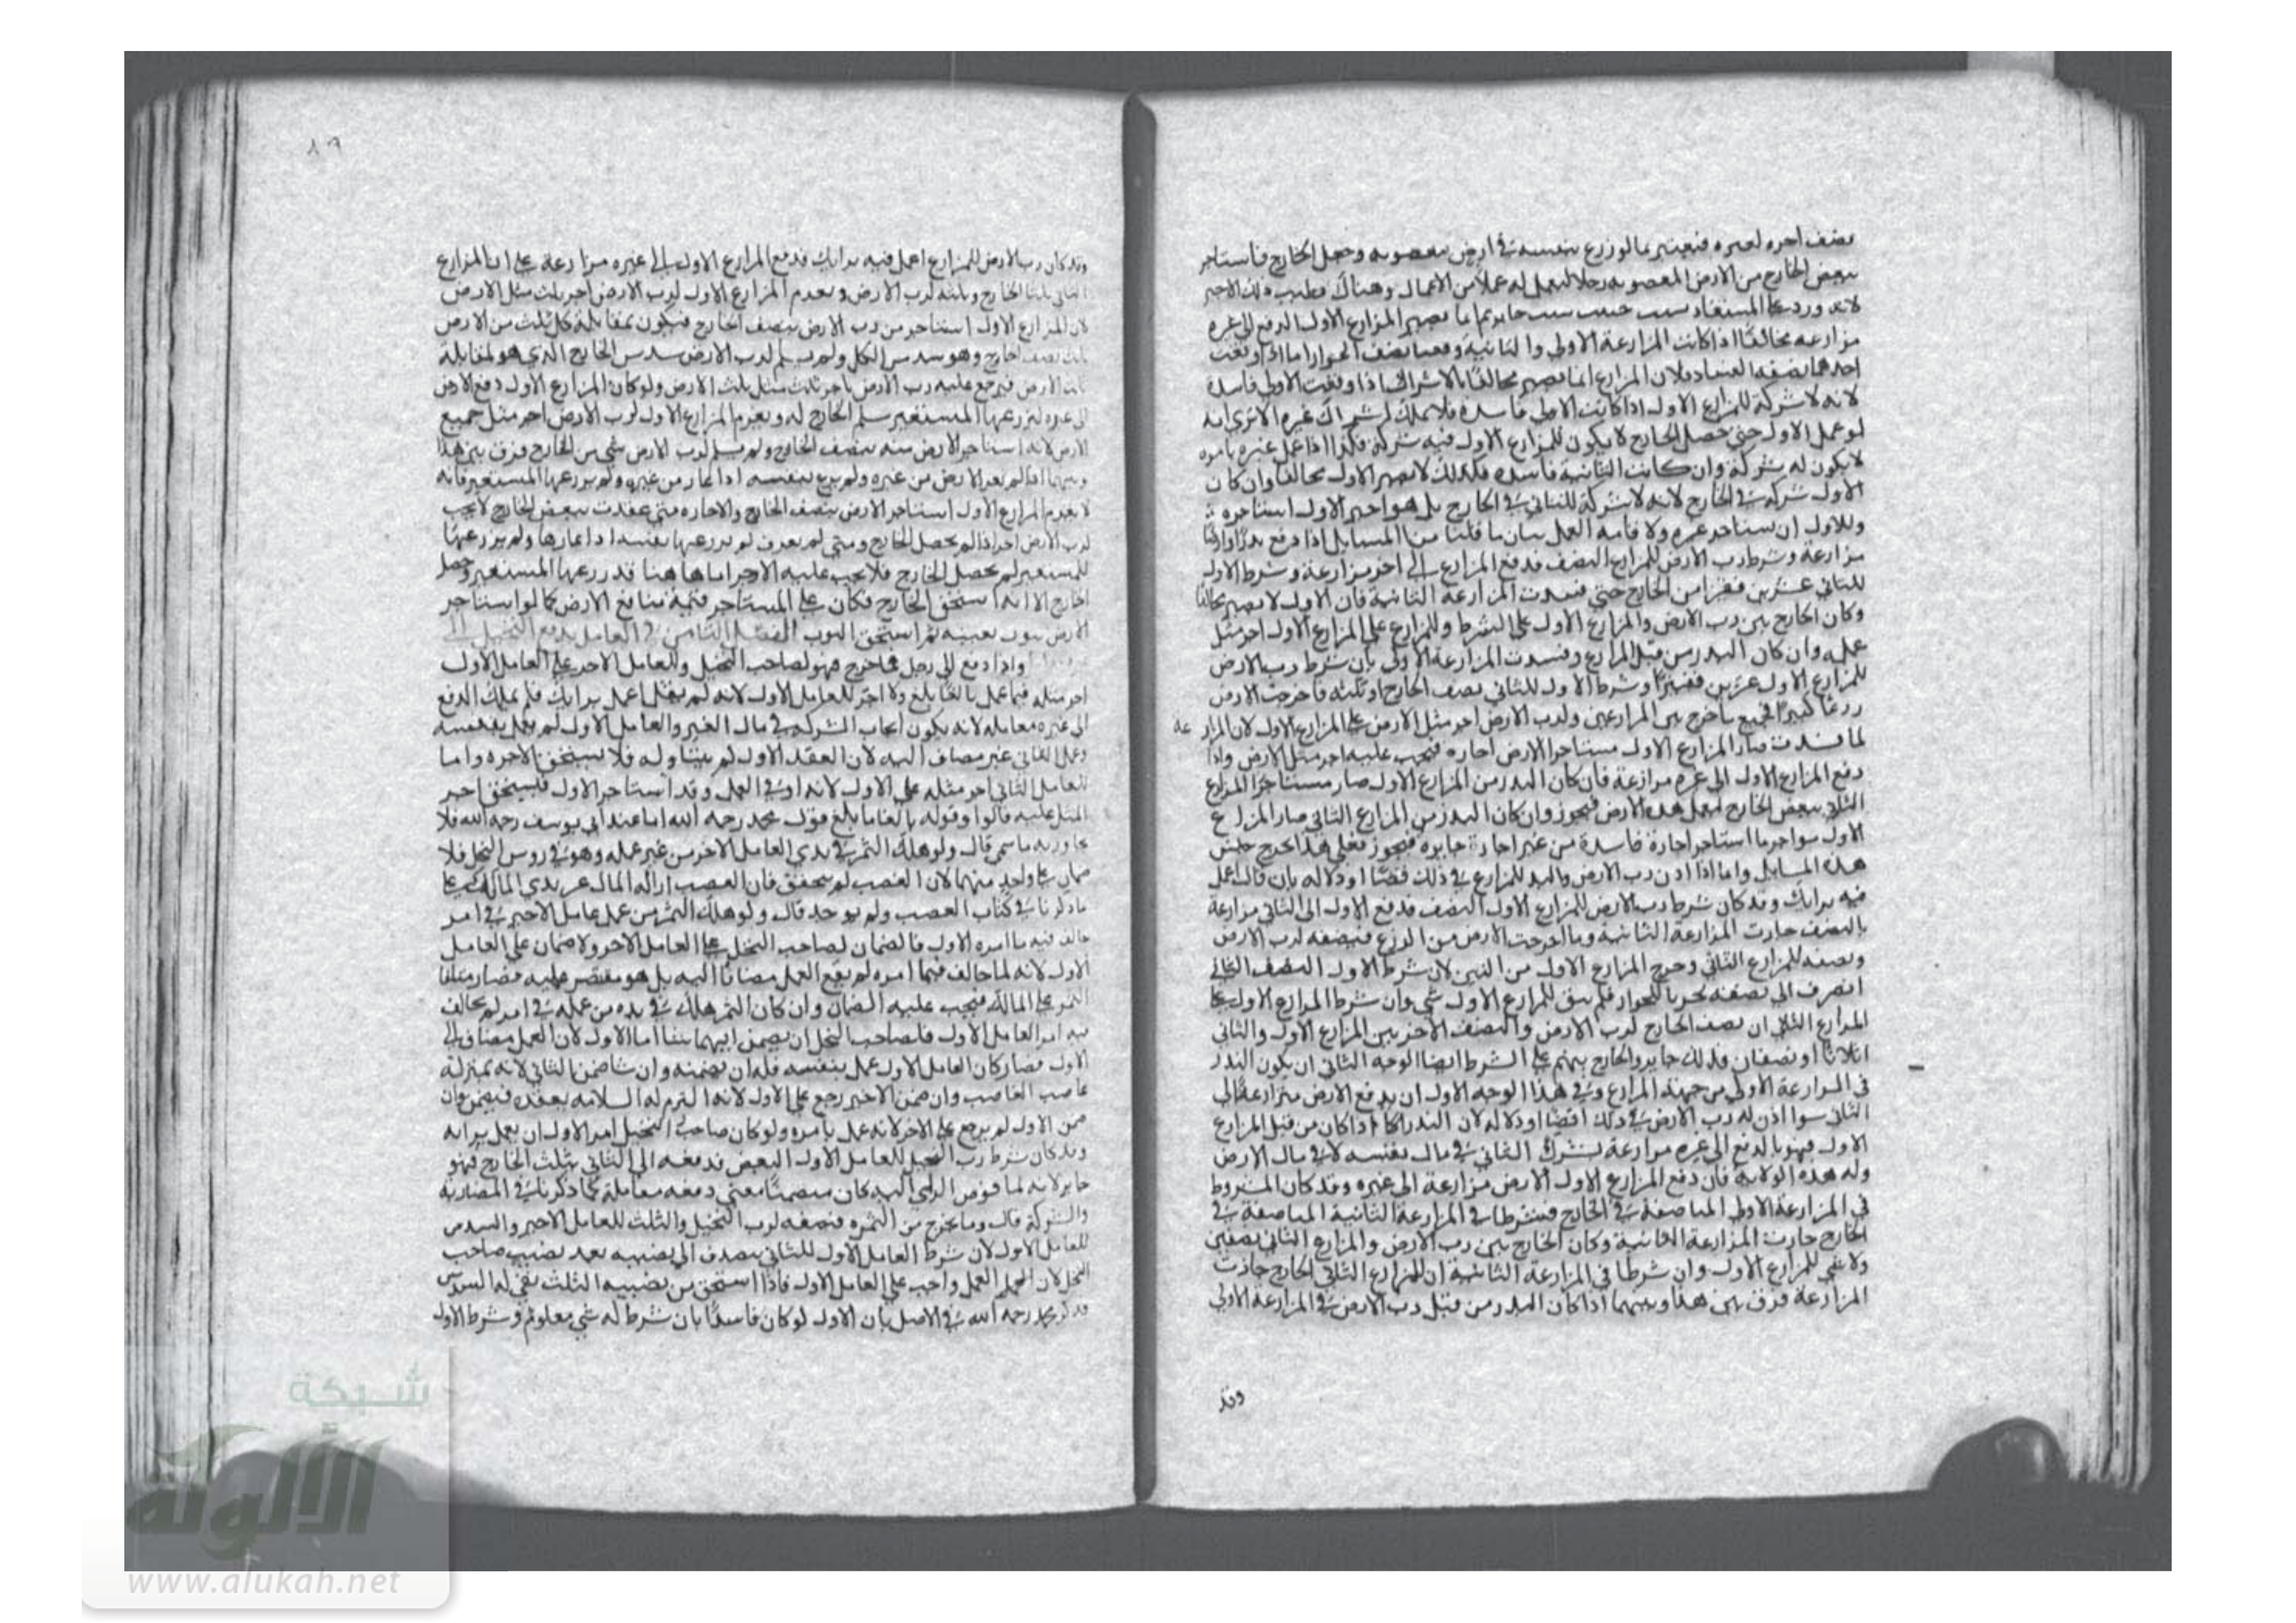 نصف اجره لغيره فيعتبر بما لو زرع بنفسه في أرض مغصوبة وجعل الخارج فاستاجر
ببعض الخارج من الارض المغصوبه رجلا ليعمل له عملا من الاعمال وهناك يطيب ذلك الاجير
مزارعه مخالفا اذا كانت المزارعة الاولي والثانية
احدهما بصفه الفساد فلا لان المزارع انما يصير مخالفا بالاشراك اذا وقعت الاولي فاسدة
لانه لا شركة للمزارع الاول اذا كانت الاولي فاسدة فلا يملك اشراك غيره الا تري انه
لو عمل الاول حتي حصل الخارج لا يكون للمزارع الاول فيه شركة فكذا اذا عمل غيره بامره
لا يكون له شركة وان كانت الثانية فاسده فكذلك لا يصير الاول مخالفا وان كان
الاول شركه في الخارج لانه لا شركة للثاني في الخارج بل هو اجير الاول استاجره
وللاول ان يستاجر غيره ولاقامه العمل بيان ما قلنا من المسايل اذا دفع بذرا وارضا
مزارعة وشرط رب الارض للمزارع النصف فدفع المزارع الي اخر مزارعة وشرط الاول
للثاني عشرين قفيزا من الخارج حتي فسدت المزارعة الثانية فان الاول لا يصير مخالفا
وكان الخارج بين رب الارض والمزارع الاول علي الشرط وللمزارع علي المزارع الاول اجر مثل
عمله وان كان البدر من قبل المزارع وفسدت المزارعة الاولي بان شرط رب الارض
للمزارع الاول عشرين قفيزا وشرط الاول للثاني نصف الخارج او ثلثه فاخرجت الارض
زرعا كثيرا فجميع ما خرج بين المزارعين ولرب الارض اجر مثل الارض علي المزارع الاول لان المزارعة
لما فسدت صار المزارع الاول مستاجرا الارض اجاره فيجب عليه اجر مثل الارض واذا
دفع المزارع الاول الي غيره مزارعة فان كان البدر من المزارع الاول صار مستاجرا المزارع
الثاني ببعض الخارج ليعمل هذه الارض فيجوز وان كان البدر من المزارع الثاني صار المزارع
الاول مواجر ما استاجر اجارة فاسدة من غير اجارة جايزه فيجوز فعلي هذا يخرج جنس
هذه المسايل واما اذا اذن رب الارض والبدر للمزارع في ذلك نصا او دلاله بان قال اعمل
فيه برايك وقد كان شرط رب الارض للمزارع الاول النصف فدفع الاول الي الثاني مزارعة
بالنصف جازت المزارعة الثانية وما اخرجت الارض من الزرع فنصفه لرب الارض
ونصفه للمزارع الثاني وخرج المزارع الاول من البين لان شرط الاول النصف الثاني
انصرف الي نصفه تحريا للجواز فلم يبق للمزارع الاول شي وان شرط المزارع الاول علي
المزارع الثاني ان نصف الخارج لرب الارض والنصف الاخر بين المزارع الاول والثاني
اثلاثا او نصفان فذلك جايز والخارج بينهم علي الشرط ايضا الوجه الثاني ان يكون البدر
في المزارعة الاولي من جهة المزارع وفي هذا الوجه الاول ان يدفع الارض مزارعة الي
الثاني سوا اذن له رب الارض في ذلك نصا او دلاله لان البدر اذا كان من قبل المزارع
الاول فهو بالدفع الي غيره مزارعة يشرك الثاني في مال نفسه لا في مال الارض
وله هذه الولايه فان دفع المزارع الاول الارض مزارعة الي غيره وقد كان المشروط
في المزارعة الاولي المناصفة في الخارج فشرطا في المزارعة الثانية المناصفة في
الخارج جازت المزارعة الثانية وكان الخارج بين رب الارض والمزارع الثاني نصفين
ولا شي للمزارع الاول وان شرطا في المزارعة الثانية ان للمزارع الثاني الخارج جازت
المزارعة فرق بين هذا وبينهما اذا كان البدر من قبل رب الارض في المزارعة الاولي
وقد
وقد كان رب الارض للمزارع اعمل فيه برايك فدفع المزارع الاول الي غيره مزارعة علي ان المزارع
الثاني ثلثا الخارج وثلثه لرب الارض ويغرم المزارع الاول لرب الارض اجر ثلث مثل الارض
لان المزارع الاول استاجر من رب الارض بنصف الخارج فيكون بمقابلة كل ثلث من الارض
ثلث نصف الخارج وهو سدس الكل ولم يسلم لرب الارض سدس الخارج الذي هو لمقابلة
ثلث الارض فيرجع عليه رب الارض باجر ثلث مثل ثلث الارض ولو كان المزارع الاول دفع الارض
الي غيره ليزرعها المستعير سلم الخارج له ويغرم المزارع الاول لرب الارض اجر مثل جميع
الارض لانه استاجر الارض منه بنصف الخارج ولم يسلم لرب الارض شي من الخارج فرق بين هذا
وبينهما اذا لم يعر الارض من غيره ولم يزرع بنفسه اذا اعار من غيره ولم يزرعها المستعير فانه
لا يغرم المزارع الاول استاجر الارض بنصف الخارج والاجاره متي عقدت ببعض الخارج لا يجب
لرب الارض اجر اذا لم يحصل الخارج
للمستعير لم يحصل الخارج فلا يجب عليه الاجر اما هاهنا قد زرعها المستعير وحصل
الخارج الا انه استحق الخارج فكان علي المستاجر قيمة منافع الارض كما لو استاجر
الارض بثوب بعينه ثم استحق الثوب الفصل الثامن في العامل يدفع النخيل الي
واذا دفع الي رجل فما خرج فهو لصاحب النخيل وللعامل الاخر علي العامل الاول
اجر مثله فيما عمل بالغا بلغ ولا اجر للعامل الاول لانه لم يقل اعمل برايك فلم يملك الدفع
الي غيره معامله لانه يكون ايجاب الشركه في مال الغير والعامل الاول لم يعمل بنفسه
وعمل الثاني غير مضاف اليه لان العقد الاول لم يتناوله فلا يستحق الاجره واما
للعامل الثاني اجر مثله علي الاول لانه اوفي العمل وقد استاجر الاول فيستحق اجر
المثل عليه قالوا وقوله بالغا ما بلغ قول محمد رحمه الله اما عند ابي يوسف رحمه الله فلا
يجاوز به ما سمي قال ولو هلك الثمر في يدي العامل الاخر من غير عمله وهو في روس النخل فلا
ضمان علي واحد منهما لان الغصب لم يتحقق فان الغصب ازالة المال عن يدي المالك علي
ما ذكرنا في كتاب الغصب ولم يوجد قال ولو هلك الثمر من عمل عامل الاخير في امر
خالف فيه ما امره الاول فالضمان لصاحب النخل علي العامل الاخر ولا ضمان علي العامل
الاول لانه لما خالف فيما امره لم يقع العمل مضافا اليه بل هو مقتصر عليه فصار متلفا
الثمر علي المالك فيجب عليه الضمان وان كان الثمر هلك في يده من عمله في امر لم يخالف
فيه امر العامل الاول فلصاحب النخل ان يضمن ايهما شا اما الاول لان العمل مضاف الي
الاول فصار كان العامل الاول عمل بنفسه فله ان يضمنه وان شا ضمن الثاني لانه بمنزلة
غاصب الغاصب وان ضمن الاخير رجع علي الاول لانه التزم له السلامه بعقده فيضمن وان
ضمن الاول لم يرجع علي الاخر لانه عمل بامره ولو كان صاحب النخيل امر الاول ان يعمل برايه
وقد كان شرط رب النخيل للعامل الاول النصف فدفعه الي الثاني بثلث الخارج فهو
جايز لانه لما فوض الراي اليه كان متضمنا معني دفعه معاملة كما ذكرنا في المضاربة
والشركة قال وما يخرج من الثمره فنصفه لرب النخيل والثلث للعامل الاخير والسدس
للعامل الاول لان شرط العامل الاول للثاني ينصرف الي نصيبه بعد نصيب صاحب
النخل لان العمل واجب علي العامل الاول فاذا استحق من نصيبه الثلث بقي له السدس
قد ذكر محمد رحمه الله في الاصل بان الاول لو كان فاسدا بان شرط له شي معلوم وشرط الاول
شبكة
الألوكة
www.alukah.net